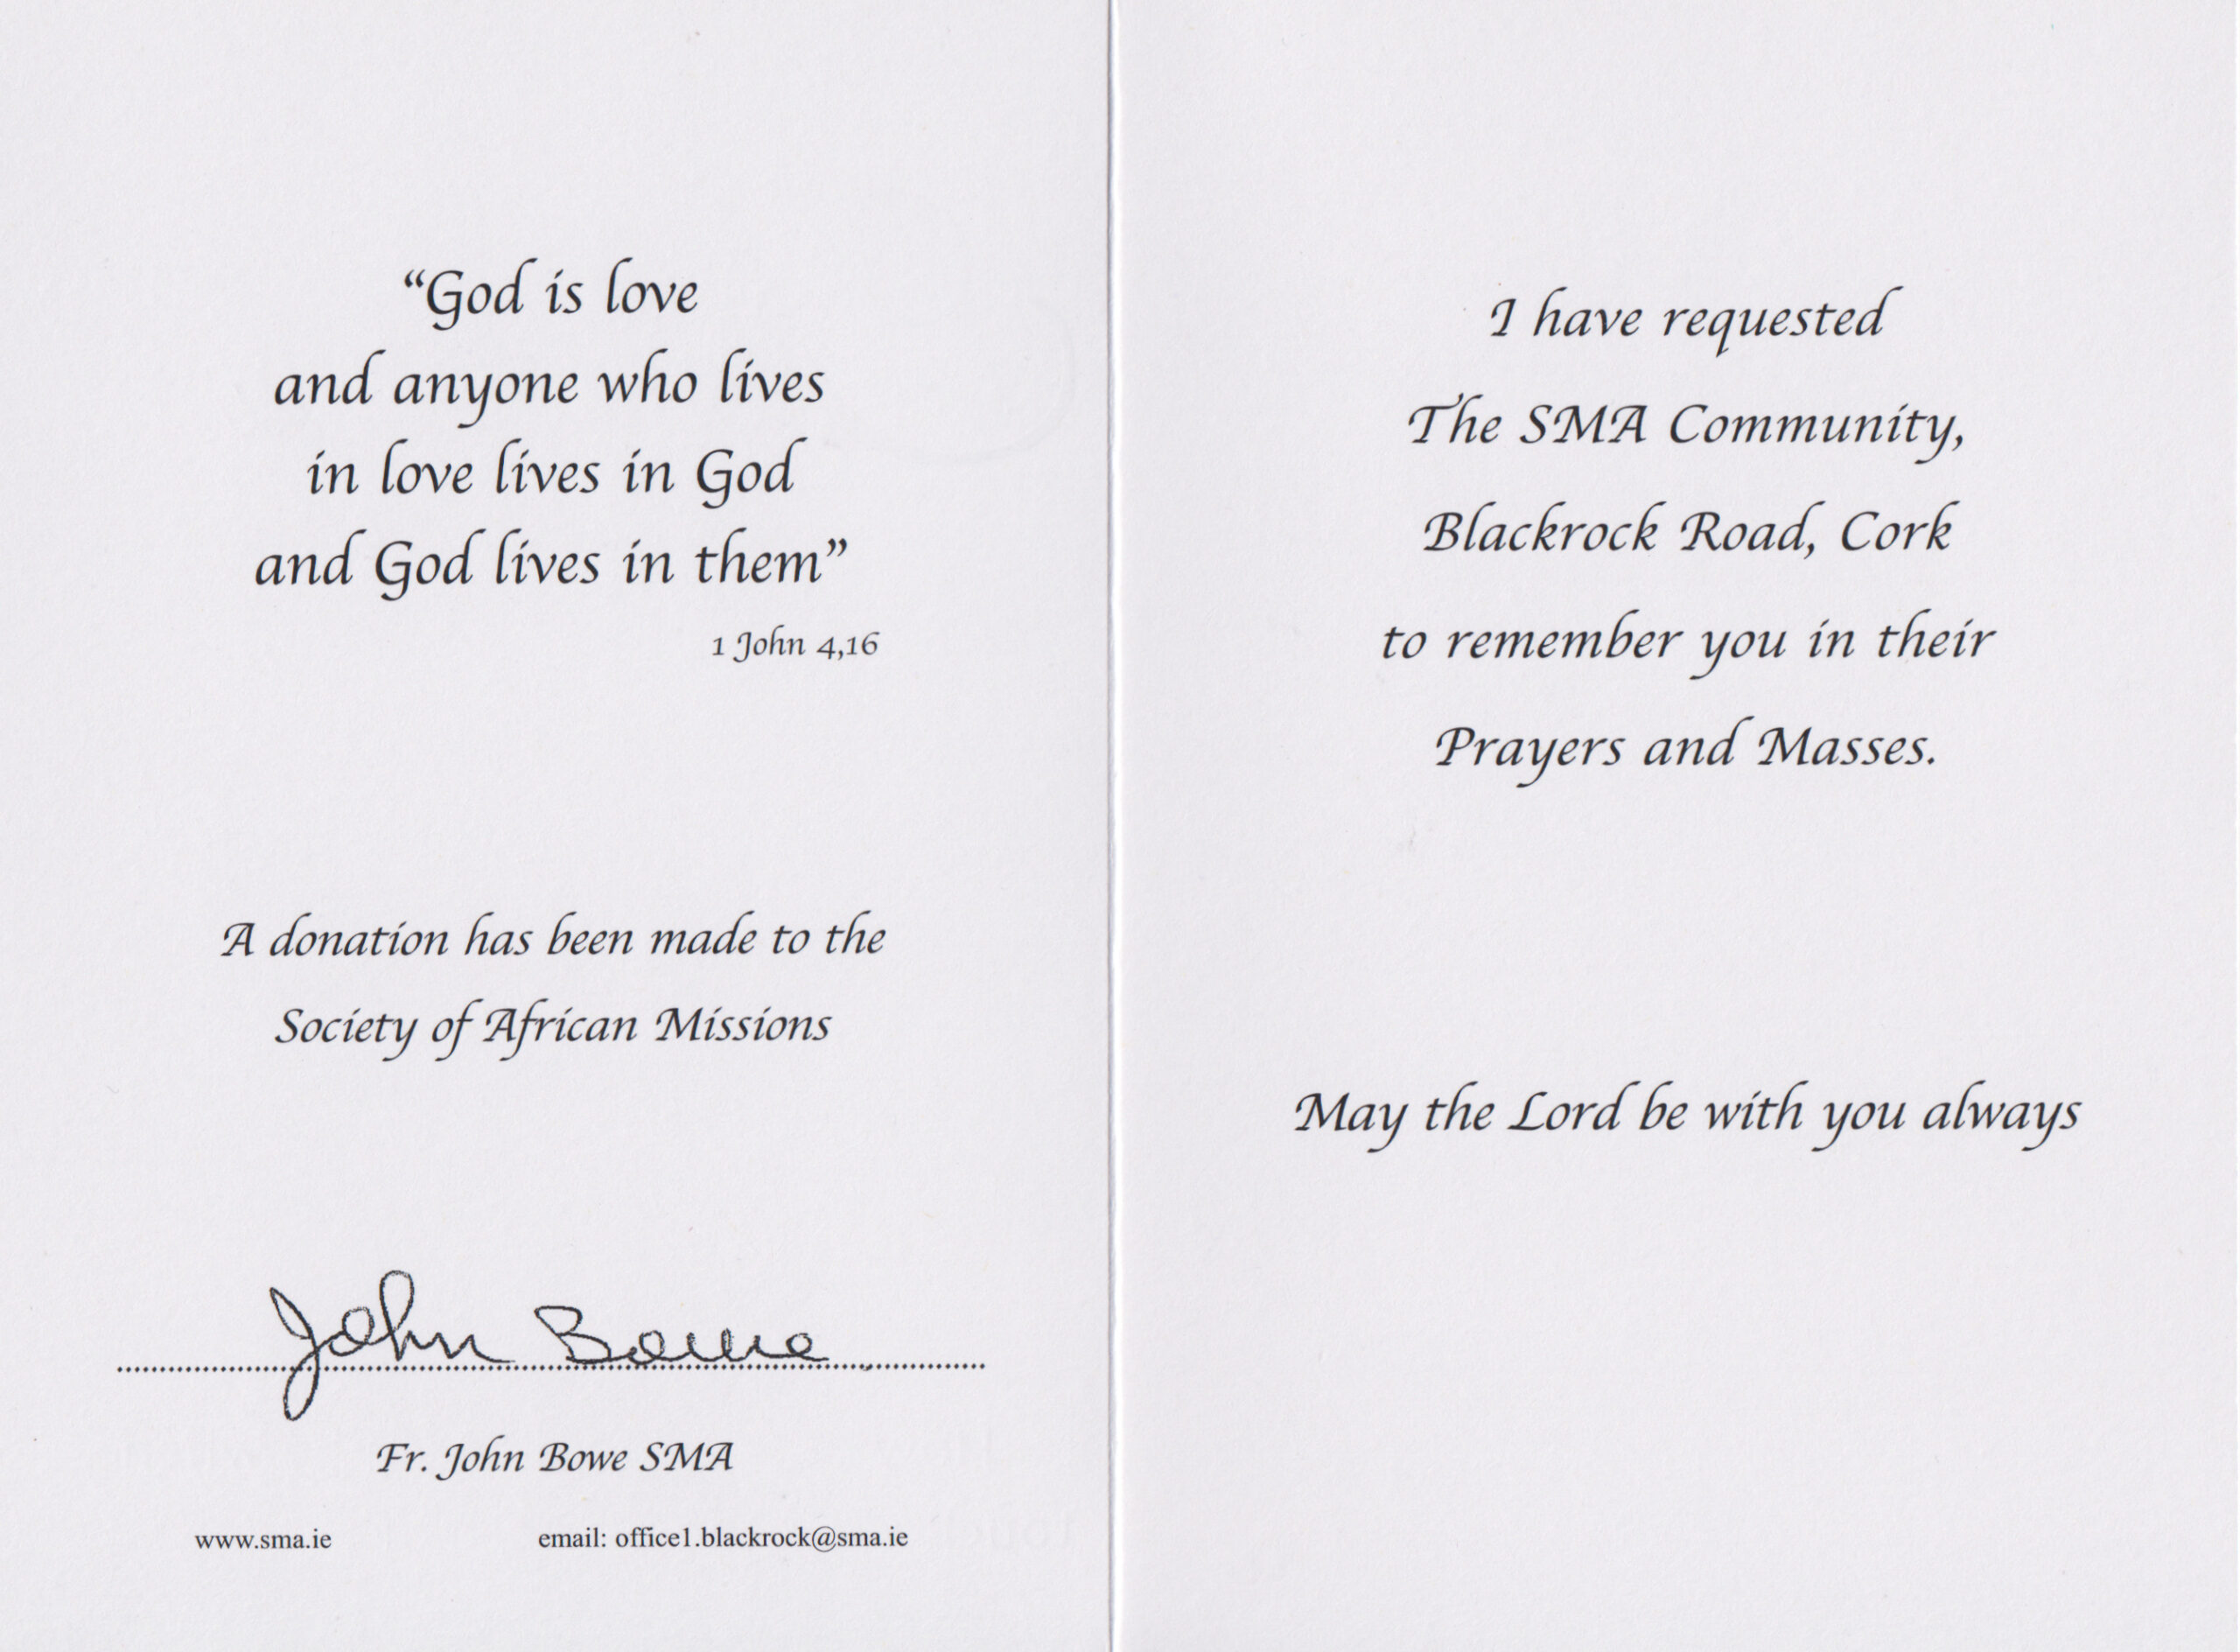 “God is love
and anyone who lives
in love lives in God
and God lives in them”
1 John 4,16
A donation has been made to the
Society of African Missions
John Bowe
Fr. John Bowe SMA
www.sma.ie email: office1.blackrock@sma.ie
I have requested
The SMA Community,
Blackrock Road, Cork
to remember you in their
Prayers and Masses.
May the Lord be with you always